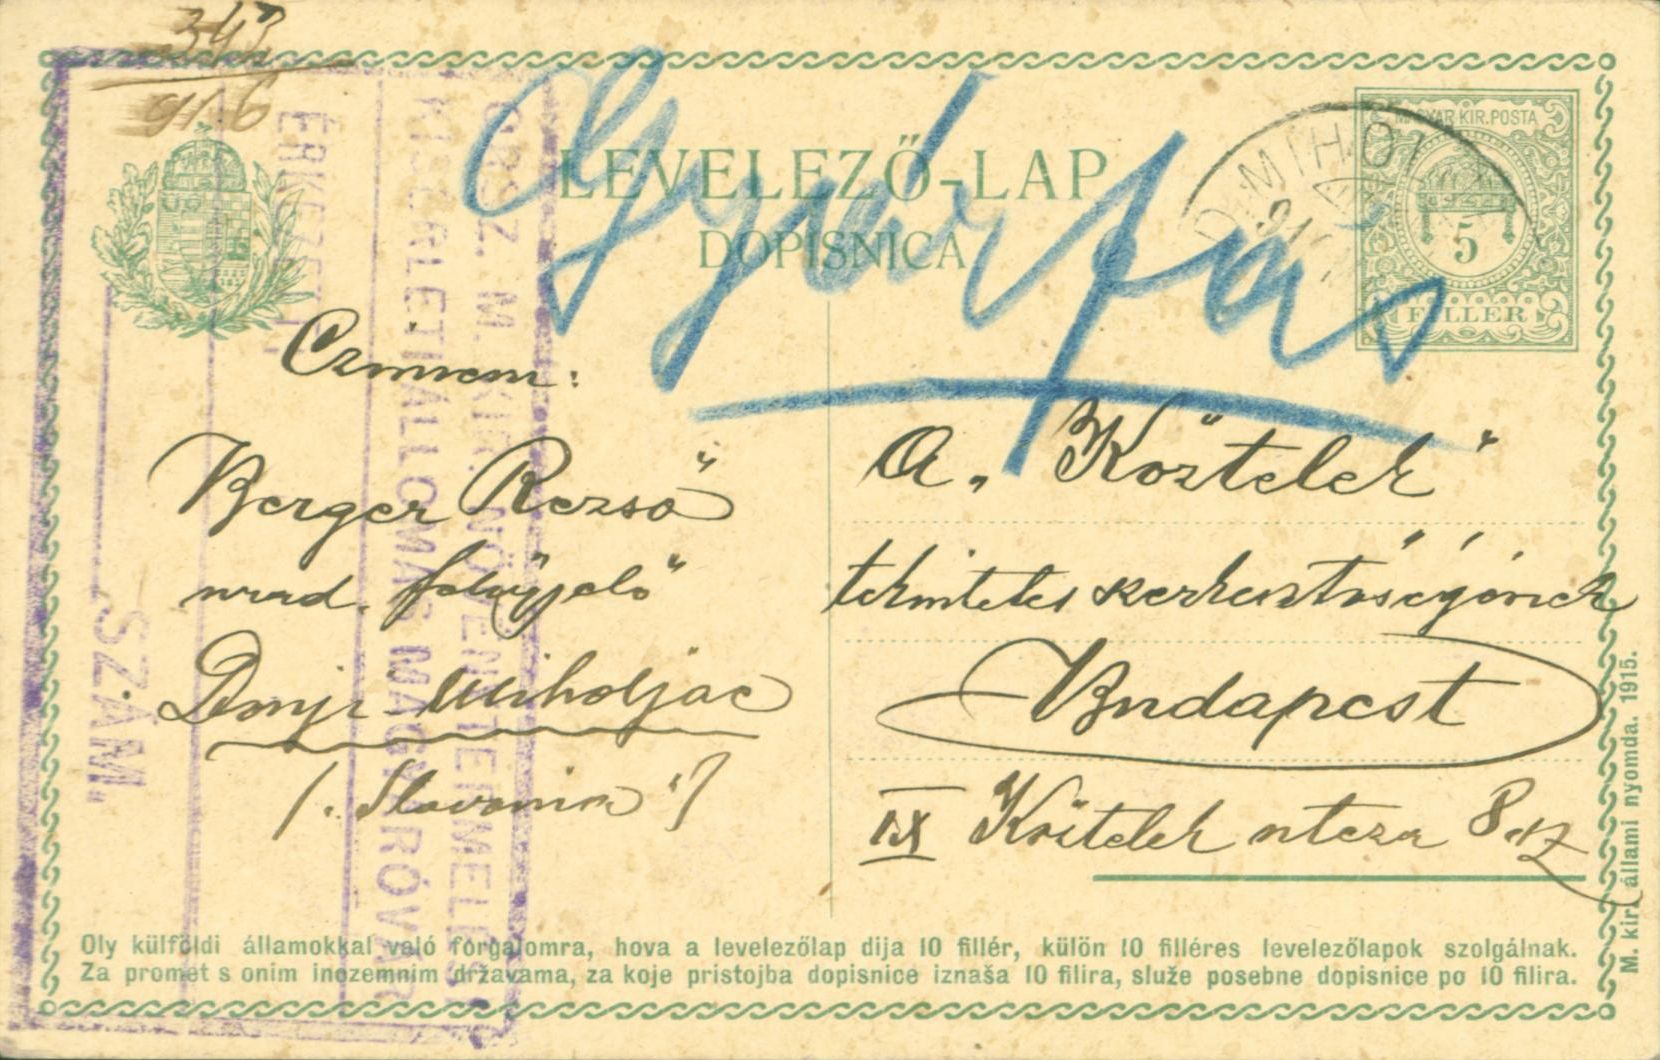 342
916
LEVELEZŐ-LAP
DOPISNICA
Gyárfás
MAGYAR KIR. POSTA
5
FILLÉR
D. MIHOL
ORSZ. M. KIR. NÖVÉNYTERMELÉSI
KISÉRLETI ÁLLOMÁS MAGYARÓVÁR
ÉRKEZETT:
SZÁM.
Czimem:
Berger Rezső
urad. felügyelő
Donji Miholjac
(Slavonia)
A "Köztelek"
tekintetes szerkesztőségének
Budapest
IX Köztelek utcza 8 sz
Oly külföldi államokkal való forgalomra, hova a levelezőlap dija 10 fillér, külön 10 filléres levelezőlapok szolgálnak.
Za promet s onim inozemnim državama, za koje pristojba dopisnice iznaša 10 filira, služe posebne dopisnice po 10 filira.
M. kir. állami nyomda. 1915.